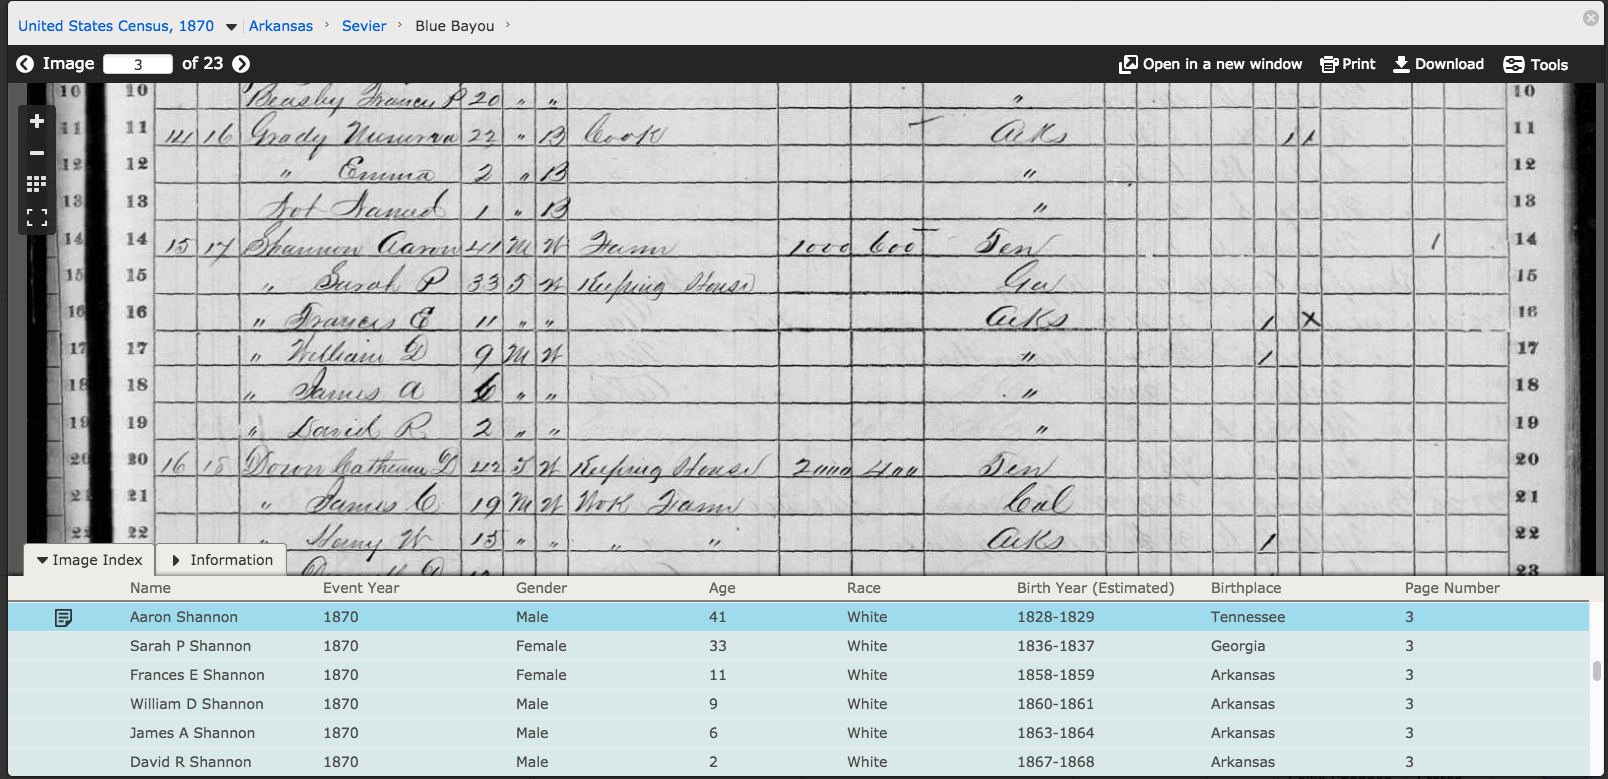 United States Census, 1870 Arkansas Sevier Blue Bayou
Image 3 of 23 Open in a new window Print Download Tools
10 10 Beasby Frances P 20 " " " 10
11 11 14 16 Grady Minerva 22 " B Cook Arks 1 1 11
12 12 " Emma 2 " B " 12
13 13 Not Named 1 " B " 13
14 14 15 17 Shannon Aaron 41 M W Farm 1000 600 Ten 1 14
15 15 " Sarah P 33 F W Keeping House Ga 15
16 16 " Francis E 11 " " Arks 1 X 16
17 17 " William D 9 M W " 1 17
18 18 " James A 6 " " " 18
19 19 " David R 2 " " " 19
20 20 16 18 Down Catherine D 42 F W Keeping House 2000 400 Ten 20
21 21 " James C 19 M W Wok Farm Cal 21
22 22 " Henry W 15 " " " " Arks 1 22
23
Image Index Information
Name Event Year Gender Age Race Birth Year (Estimated) Birthplace Page Number
Aaron Shannon 1870 Male 41 White 1828-1829 Tennessee 3
Sarah P Shannon 1870 Female 33 White 1836-1837 Georgia 3
Frances E Shannon 1870 Female 11 White 1858-1859 Arkansas 3
William D Shannon 1870 Male 9 White 1860-1861 Arkansas 3
James A Shannon 1870 Male 6 White 1863-1864 Arkansas 3
David R Shannon 1870 Male 2 White 1867-1868 Arkansas 3